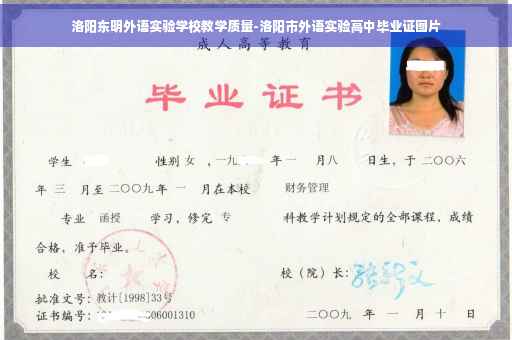 洛阳东明外语实验学校教学质量-洛阳市外语实验高中毕业证图片
成人高等教育
毕业证书
学生 性别 女 ，一九 年 一 月八 日生，于 二〇〇六
年 三 月至 二〇〇九 年 一 月在本校 财务管理
专业 函授 学习，修完 专 科教学计划规定的全部课程，成绩
合格，准予毕业。
校 名： 校（院）长：
批准文号：教计[1998]33号
证书编号： 006001310 二〇〇九 年 一 月 十 日